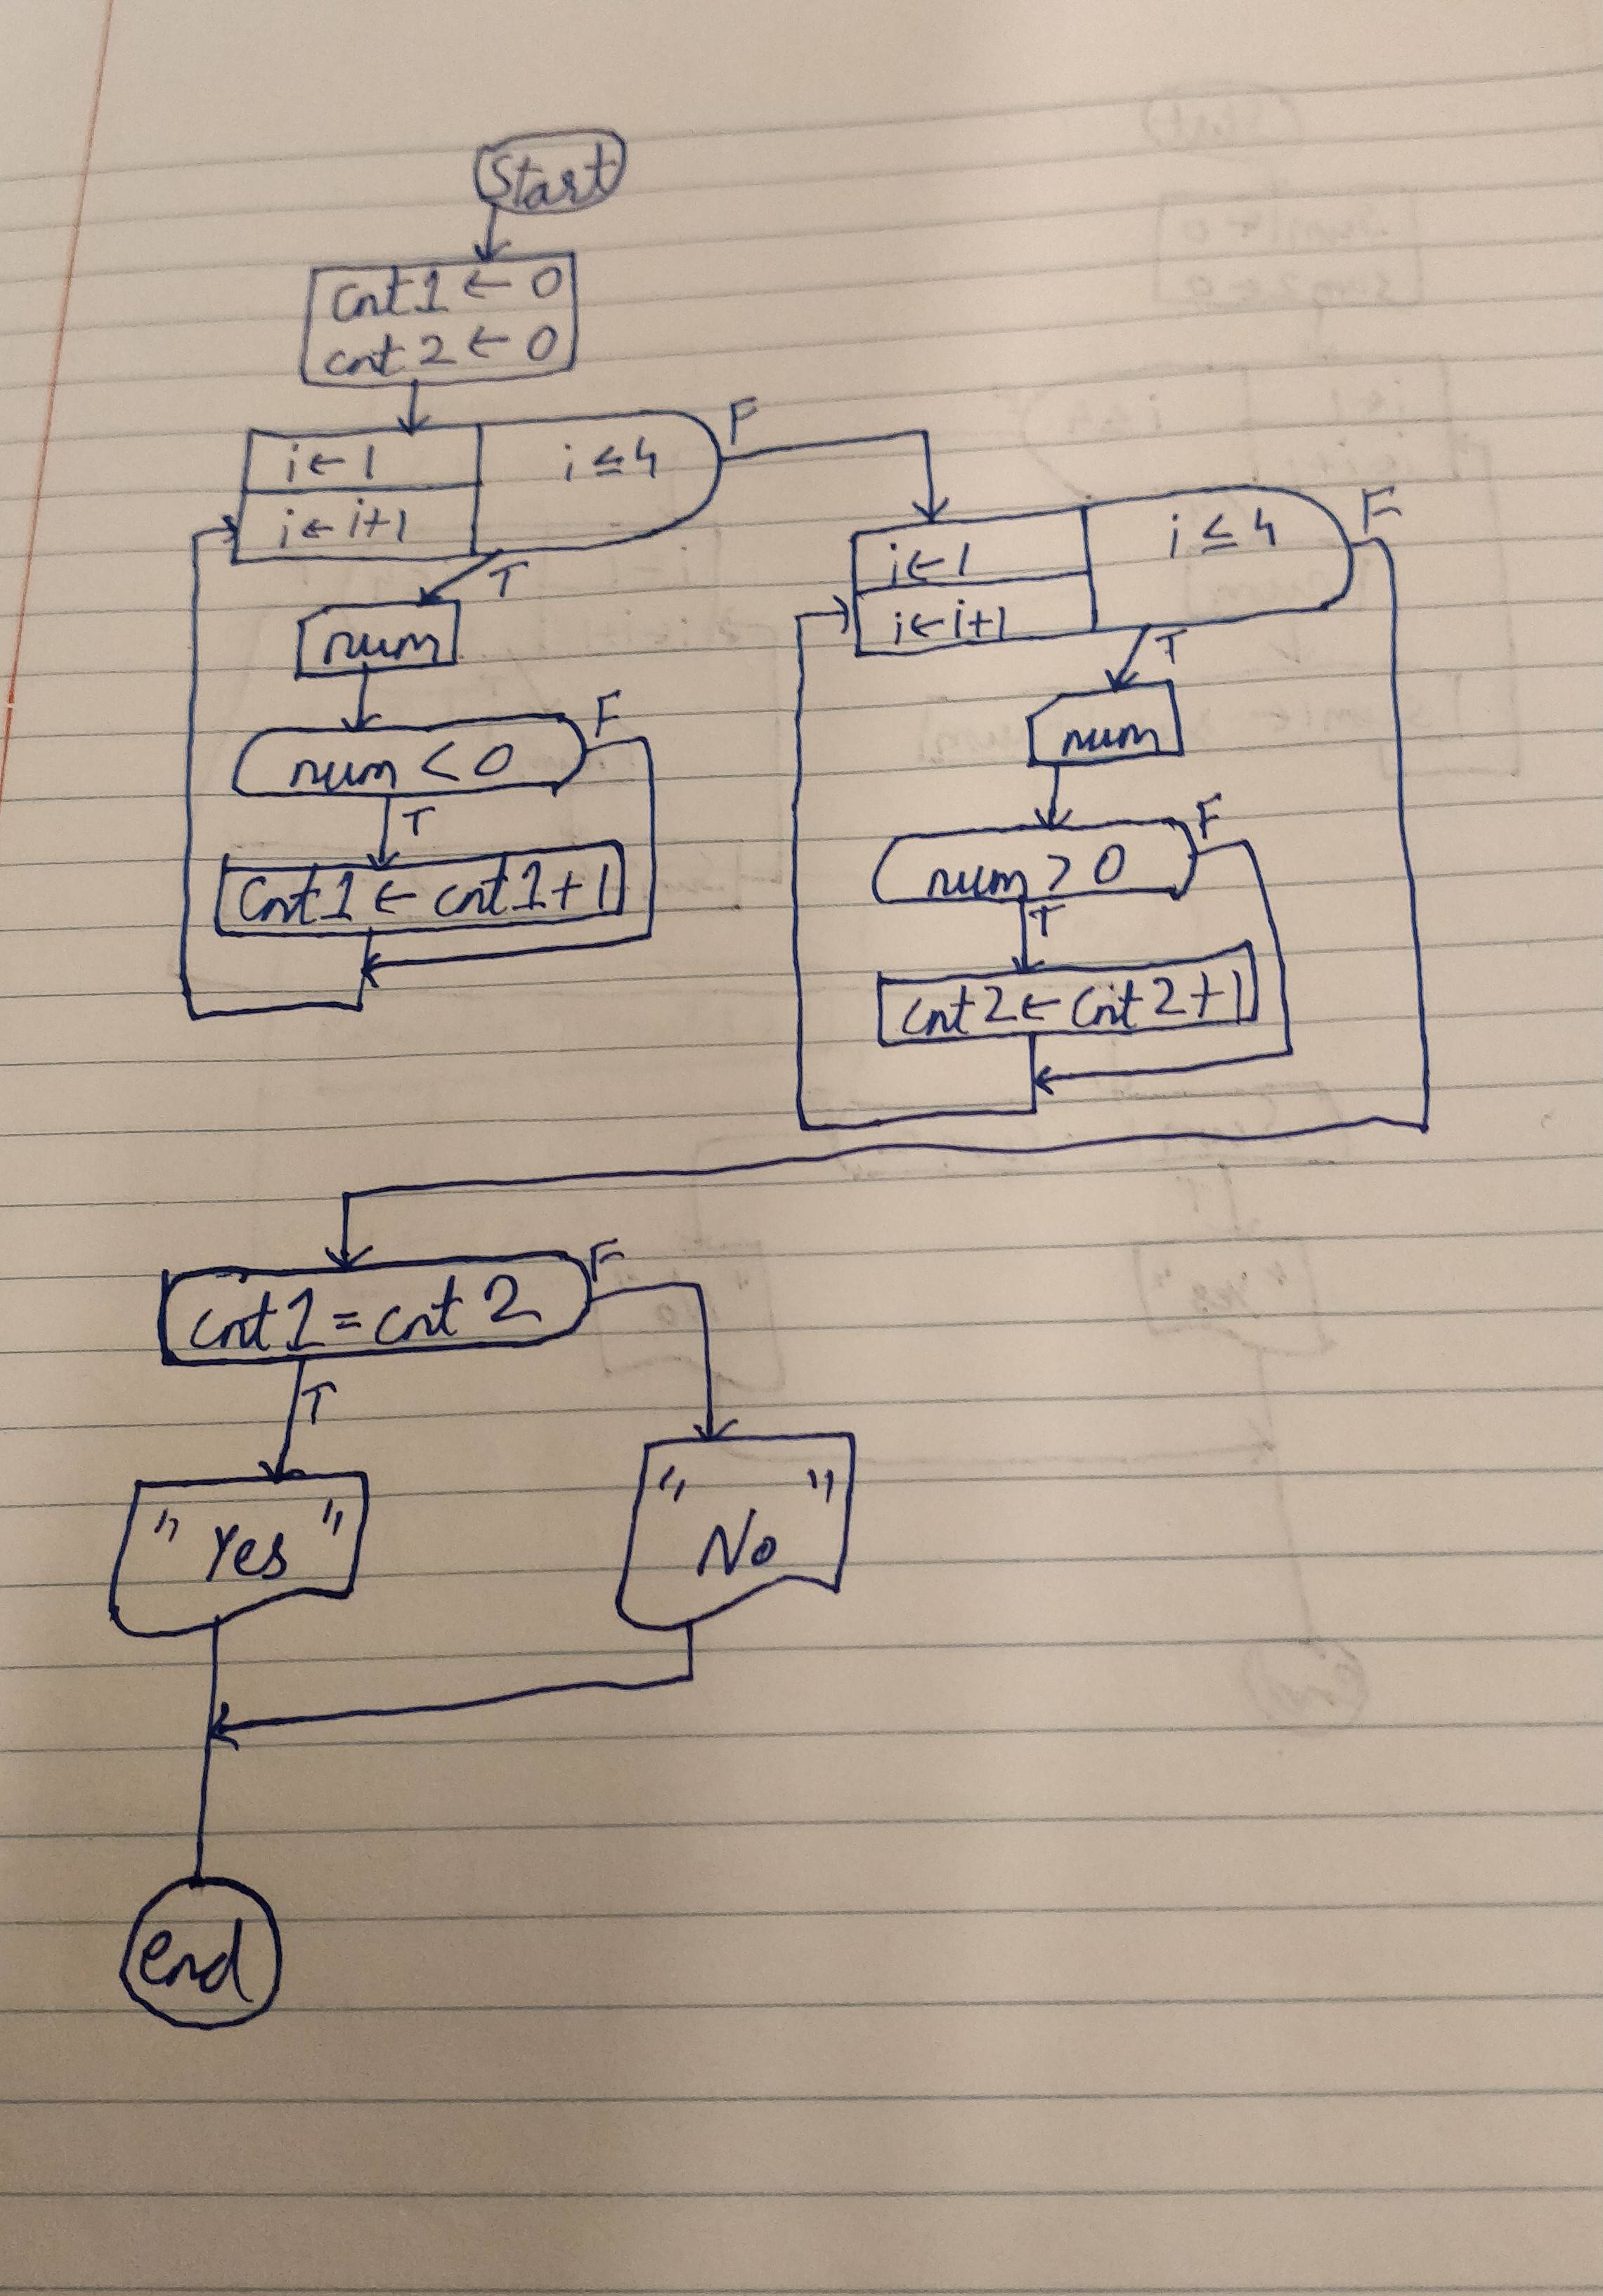 Start
cnt1 ← 0
cnt2 ← 0
i ← 1
i ≤ 4
F
i ← i+1
T
num
num < 0
F
T
cnt1 ← cnt1+1
i ← 1
i ≤ 4
F
i ← i+1
T
num
num > 0
F
T
cnt2 ← cnt2+1
cnt1 = cnt2
F
T
" Yes "
" No "
end